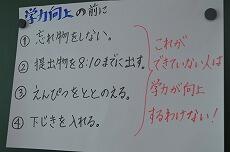 学力向上の前に
① 忘れ物をしない。
② 提出物を8:10までに出す。
③ えんぴつをととのえる。
④ 下じきを入れる。
これが
できていない人は
学力が向上
するわけない!